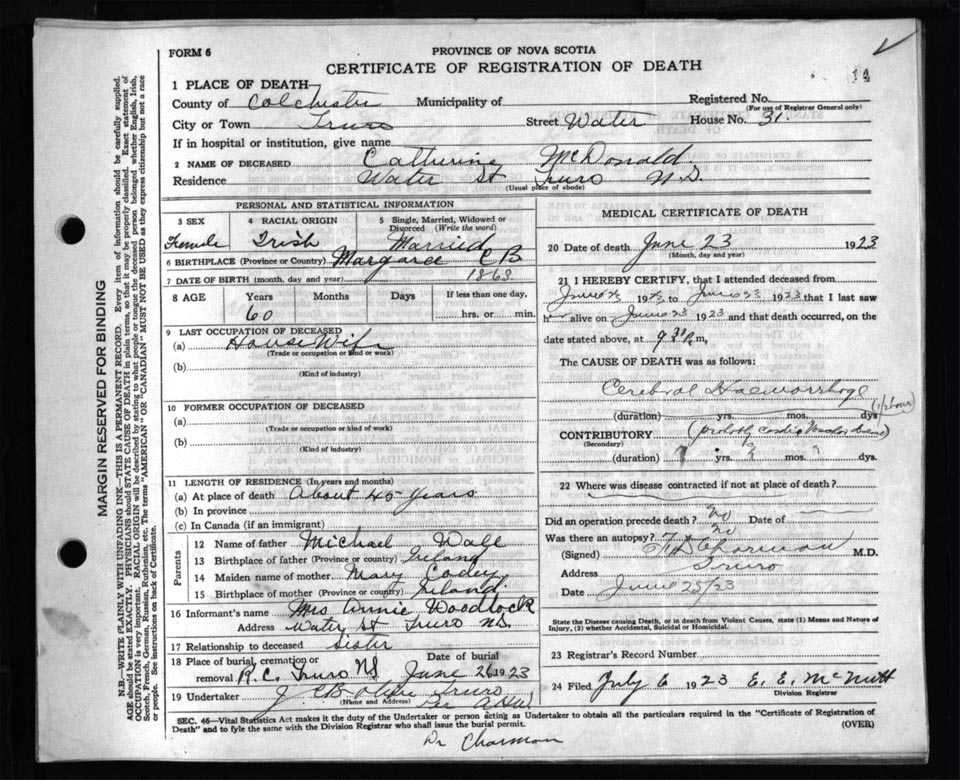 FORM 6
PROVINCE OF NOVA SCOTIA
CERTIFICATE OF REGISTRATION OF DEATH
14
1 PLACE OF DEATH
County of Colchester Municipality of Registered No.
(For use of Registrar General only)
City or Town Truro Street Water House No. 31
If in hospital or institution, give name
2 NAME OF DECEASED Catherine McDonald.
Residence Water St Truro N.S.
(Usual place of abode)
PERSONAL AND STATISTICAL INFORMATION
3 SEX 4 RACIAL ORIGIN 5 Single, Married, Widowed or Divorced (Write the word)
Female Irish Married
6 BIRTHPLACE (Province or Country) Margaree CB
7 DATE OF BIRTH (month, day and year) 1863
8 AGE Years Months Days If less than one day,
60 hrs. or min.
9 LAST OCCUPATION OF DECEASED
(a) House Wife
(Trade or occupation or kind or work)
(b)
(Kind of industry)
10 FORMER OCCUPATION OF DECEASED
(a)
(Trade or occupation or kind of work)
(b)
(Kind of industry)
11 LENGTH OF RESIDENCE (In years and months)
(a) At place of death About 45 years
(b) In province
(c) In Canada (if an immigrant)
Parents
12 Name of father Michael Wall
13 Birthplace of father (Province or country) Ireland
14 Maiden name of mother Mary Codey
15 Birthplace of mother (Province or country) Ireland
16 Informant's name Mrs Annie Woodlock
Address Water St Truro NS.
17 Relationship to deceased Sister
18 Place of burial, cremation or removal R.C. Truro NS Date of burial June 26 1923
19 Undertaker Truro
(Name and Address) Per
MEDICAL CERTIFICATE OF DEATH
20 Date of death June 23 1923
(Month, day and year)
21 I HEREBY CERTIFY, that I attended deceased from
June 23 1923 to June 23 1923 that I last saw
h alive on June 23 1923 and that death occurred, on the
date stated above, at 9 30 P.m,
The CAUSE OF DEATH was as follows:
Cerebral Haemorrhage
(duration) yrs. mos. dys (1/2 hour)
CONTRIBUTORY (probably cardio
(Secondary)
(duration) ? yrs. ? mos. ? dys.
22 Where was disease contracted if not at place of death?
Did an operation precede death? No Date of
Was there an autopsy? no
(Signed) Charman M.D.
Address Truro
Date June 25/23
State the Disease causing Death, or in death from Violent Causes, state (1) Means and Nature of
Injury, (2) whether Accidental, Suicidal or Homicidal.
23 Registrar's Record Number
24 Filed July 6 1923 E. E. McNutt
Division Registrar
SEC. 46—Vital Statistics Act makes it the duty of the Undertaker or person acting as Undertaker to obtain all the particulars required in the "Certificate of Registration of
Death" and to fyle the same with the Division Registrar who shall issue the burial permit. (OVER)
Dr Charman
MARGIN RESERVED FOR BINDING
N.B.—WRITE PLAINLY WITH UNFADING INK—THIS IS A PERMANENT RECORD. Every item of information should be carefully supplied.
AGE should be stated EXACTLY. PHYSICIANS should STATE CAUSE OF DEATH in plain terms, so that it may be properly classified. Exact statement of
OCCUPATION is very important. RACIAL ORIGIN will be described by stating to what people or tongue the deceased person belonged whether English, Irish,
Scotch, French, German, Russian, Ruthenian, etc. The terms "AMERICAN" OR "CANADIAN" MUST NOT BE USED as they express citizenship but not a race
or people. See instructions on back of Certificate.